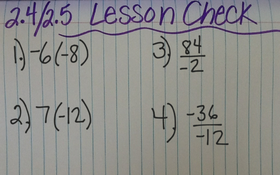 2.4/2.5 Lesson Check
1.) -6(-8)
3.) 84/-2
2.) 7(-12)
4.) -36/-12